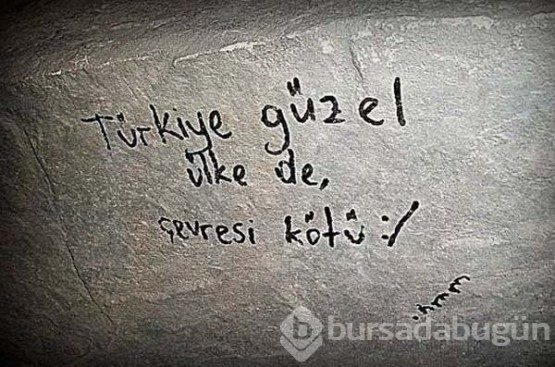 Türkiye güzel
ülke de,
çevresi kötü :/
.hmm
bursadabugün